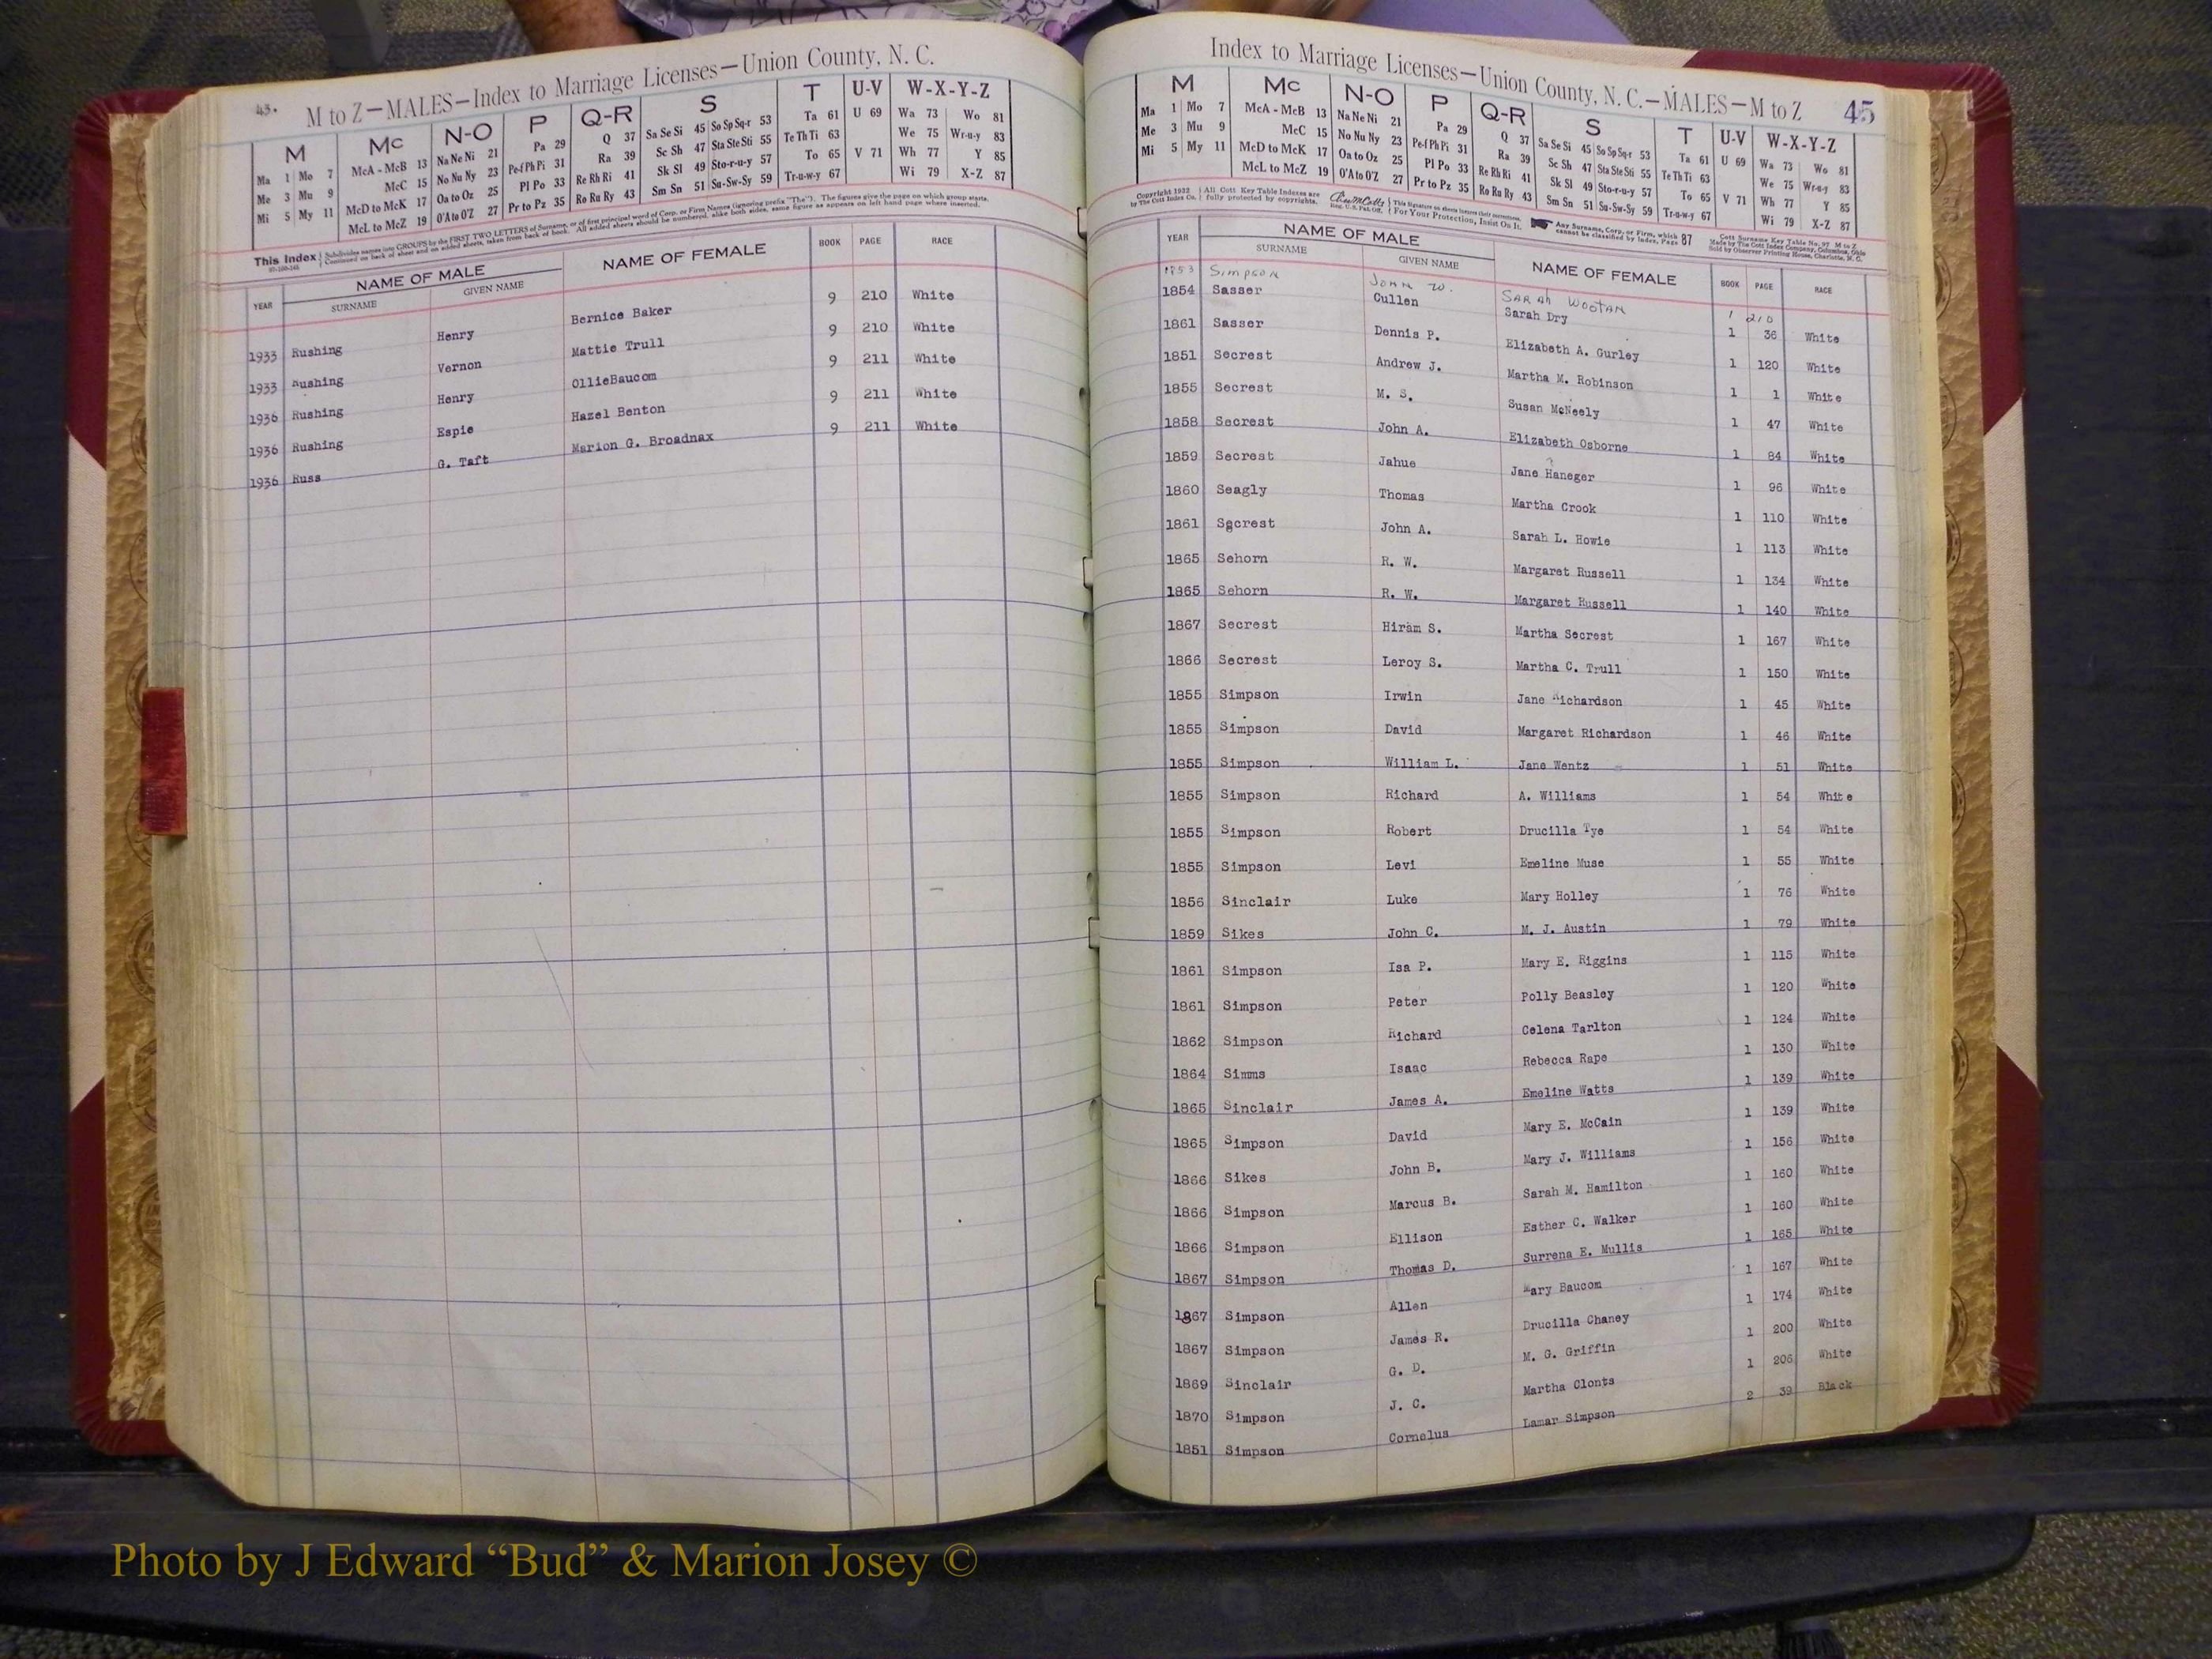 43.
M to Z—MALES—Index to Marriage Licenses—Union County, N. C.
M Mc N-O P Q-R S T U-V W-X-Y-Z
Ma 1 Mo 7 McA - McB 13 Na Ne Ni 21 Pa 29 Q 37 Sa Se Si 45 So Sp Sq-r 53 Ta 61 U 69 Wa 73 Wo 81
Me 3 Mu 9 McC 15 No Nu Ny 23 Pe-f Ph Pi 31 Ra 39 Sc Sh 47 Sta Ste Sti 55 Te Th Ti 63 We 75 Wr-u-y 83
Mi 5 My 11 McD to McK 17 Oa to Oz 25 Pl Po 33 Re Rh Ri 41 Sk Sl 49 Sto-r-u-y 57 To 65 V 71 Wh 77 Y 85
McL to McZ 19 O'A to O'Z 27 Pr to Pz 35 Ro Ru Ry 43 Sm Sn 51 Su-Sw-Sy 59 Tr-u-w-y 67 Wi 79 X-Z 87
This Index Subdivides names into GROUPS by the FIRST TWO LETTERS of Surname, or of first principal word of Corp. or Firm Names (ignoring prefix "The"). The figures give the page on which group starts.
Continued on back of sheet and on added sheets, taken from back of book. All added sheets should be numbered, alike both sides, same figure as appears on left hand page where inserted.
YEAR NAME OF MALE NAME OF FEMALE BOOK PAGE RACE
SURNAME GIVEN NAME
1933 Rushing Henry Bernice Baker 9 210 White
1933 Rushing Vernon Mattie Trull 9 210 White
1936 Rushing Henry OllieBaucom 9 211 White
1936 Rushing Espie Hazel Benton 9 211 White
1936 Russ G. Taft Marion G. Broadnax 9 211 White
Index to Marriage Licenses—Union County, N. C.—MALES—M to Z 45
M Mc N-O P Q-R S T U-V W-X-Y-Z
Ma 1 Mo 7 McA - McB 13 Na Ne Ni 21 Pa 29 Q 37 Sa Se Si 45 So Sp Sq-r 53 Ta 61 U 69 Wa 73 Wo 81
Me 3 Mu 9 McC 15 No Nu Ny 23 Pe-f Ph Pi 31 Ra 39 Sc Sh 47 Sta Ste Sti 55 Te Th Ti 63 We 75 Wr-u-y 83
Mi 5 My 11 McD to McK 17 Oa to Oz 25 Pl Po 33 Re Rh Ri 41 Sk Sl 49 Sto-r-u-y 57 To 65 V 71 Wh 77 Y 85
McL to McZ 19 O'A to O'Z 27 Pr to Pz 35 Ro Ru Ry 43 Sm Sn 51 Su-Sw-Sy 59 Tr-u-w-y 67 Wi 79 X-Z 87
Copyright 1932 by The Cott Index Co. All Cott Key Table Indexes are fully protected by copyrights. For Your Protection, Insist On It. Any Surname, Corp. or Firm, which cannot be classified by Index, Page 87
Cott Surname Key Table No. 97 M to Z Made by The Cott Index Company, Columbus, Ohio Sold by Observer Printing House, Charlotte, N. C.
YEAR NAME OF MALE NAME OF FEMALE BOOK PAGE RACE
SURNAME GIVEN NAME
1853 Simpson John W. Sarah Wootan 1 210
1854 Sasser Cullen Sarah Dry 1 36 White
1861 Sasser Dennis P. Elizabeth A. Gurley 1 120 White
1851 Secrest Andrew J. Martha M. Robinson 1 1 White
1855 Secrest M. S. Susan McNeely 1 47 White
1858 Secrest John A. Elizabeth Osborne 1 84 White
1859 Secrest Jahue Jane Haneger 1 96 White
1860 Seagly Thomas Martha Crook 1 110 White
1861 Secrest John A. Sarah L. Howie 1 113 White
1865 Sehorn R. W. Margaret Russell 1 134 White
1865 Sehorn R. W. Margaret Russell 1 140 White
1867 Secrest Hiram S. Martha Secrest 1 167 White
1866 Secrest Leroy S. Martha C. Trull 1 150 White
1855 Simpson Irwin Jane Richardson 1 45 White
1855 Simpson David Margaret Richardson 1 46 White
1855 Simpson William L. Jane Wentz 1 51 White
1855 Simpson Richard A. Williams 1 54 White
1855 Simpson Robert Drucilla Tye 1 54 White
1855 Simpson Levi Emeline Muse 1 55 White
1856 Sinclair Luke Mary Holley 1 76 White
1859 Sikes John C. M. J. Austin 1 79 White
1861 Simpson Isa P. Mary E. Riggins 1 115 White
1861 Simpson Peter Polly Beasley 1 120 White
1862 Simpson Richard Celena Tarlton 1 124 White
1864 Simms Isaac Rebecca Rape 1 130 White
1865 Sinclair James A. Emeline Watts 1 139 White
1865 Simpson David Mary E. McCain 1 139 White
1866 Sikes John B. Mary J. Williams 1 156 White
1866 Simpson Marcus B. Sarah M. Hamilton 1 160 White
1866 Simpson Ellison Esther C. Walker 1 160 White
1867 Simpson Thomas D. Surrena E. Mullis 1 165 White
1867 Simpson Allen Mary Baucom 1 167 White
1867 Simpson James R. Drucilla Chaney 1 174 White
1869 Sinclair G. D. M. G. Griffin 1 200 White
1870 Simpson J. C. Martha Clonts 1 206 White
1851 Simpson Cornelus Lamar Simpson 2 39 Black
Photo by J Edward “Bud” & Marion Josey ©